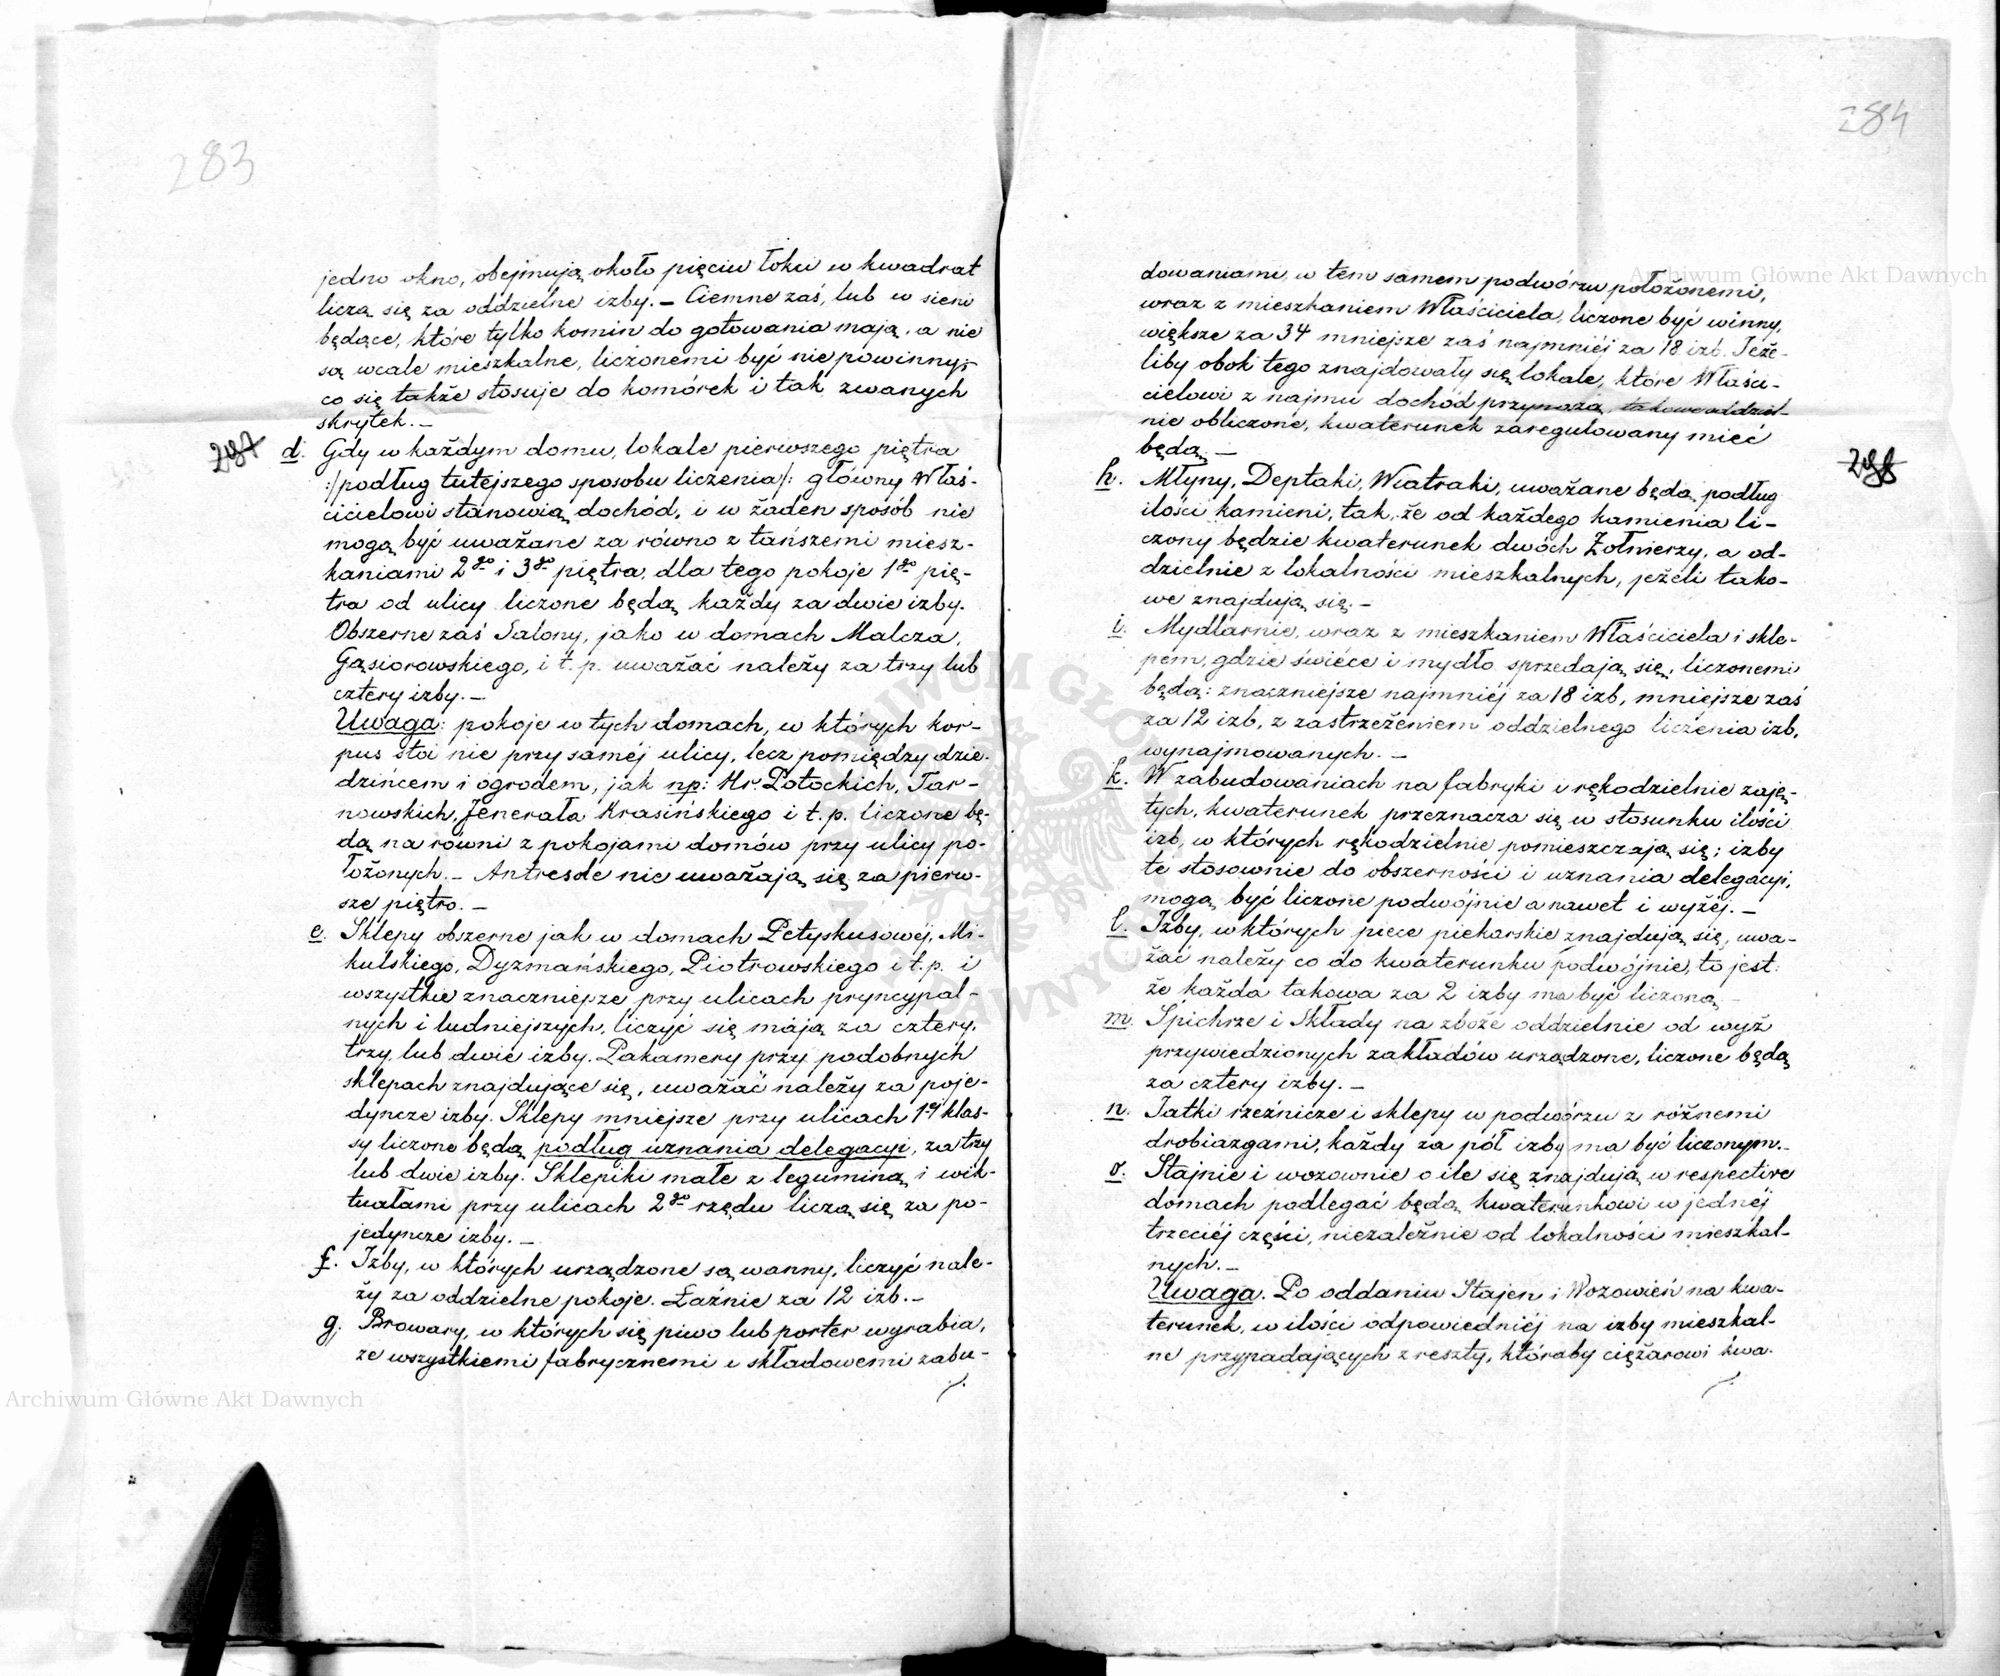 283
jedno okno, obejmują około pięciu łokci w kwadrat
liczą się za oddzielne izby. – Ciemne zaś, lub w sieni
będące, które tylko komin do gotowania mają, a nie
są wcale mieszkalne, liczonemi być nie powinny,
co się także stosuje do komórek i tak zwanych
skrytek. –
287
d. Gdy w każdym domu, lokale pierwszego piętra
:/podług tutejszego sposobu liczenia/: główny Właś-
cicielowi stanowią dochód, i w żaden sposób nie
mogą być uważane za równo z tańszemi miesz-
kaniami 2go i 3go piętra, dla tego pokoje 1go pię-
tra od ulicy liczone będą każdy za dwie izby.
Obszerne zaś Salony, jako w domach Malcza,
Gąsiorowskiego, i t. p. uważać należy za trzy lub
cztery izby. –
Uwaga: pokoje w tych domach, w których kor-
pus stoi nie przy saméj ulicy, lecz pomiędzy dzie-
dzińcem i ogrodem, jak np: Hr. Potockich, Tar-
nowskich, Jenerała Krasińskiego i t. p. liczone bę-
dą na równi z pokojami domów przy ulicy po-
łożonych. – Antresole nie uważają się za pierw-
sze piętro. –
e. Sklepy obszerne jak w domach Petyskusowéj, Mi-
kulskiego, Dyzmańskiego, Piotrowskiego i t. p. i
wszystkie znaczniejsze przy ulicach pryncypal-
nych i ludniejszych, liczyć się mają za cztery,
trzy, lub dwie izby. Pakamery przy podobnych
sklepach znajdujące się, uważać należy za poje-
dyncze izby. Sklepy mniejsze przy ulicach 1éj klas-
sy liczone będą podług uznania delegacyi, za trzy
lub dwie izby. Sklepiki małe z leguminą i wik-
tuałami przy ulicach 2go rzędu liczą się za po-
jedyncze izby. –
f. Izby, w których urządzone są wanny, liczyć nale-
ży za oddzielne pokoje. Łaźnie za 12 izb. –
g. Browary, w których się piwo lub porter wyrabia,
ze wszystkiemi fabrycznemi i składowemi zabu-
284
dowaniami, w tem samem podwórzu położonemi,
wraz z mieszkaniem Właściciela, liczone być winny,
większe za 34 mniejsze zaś najmniéj za 18 izb. Jeże-
liby obok tego znajdowały się lokale, które Właści-
cielowi z najmu dochód przynoszą, takowe oddziel-
nie obliczone, kwaterunek zaregulowany mieć
będą. –
288
h. Młyny, Deptaki, Wiatraki, uważane będą podług
ilości kamieni, tak, że od każdego kamienia li-
czony będzie kwaterunek dwóch Żołnierzy, a od-
dzielnie z lokalności mieszkalnych, jeżeli tako-
we znajdują się. –
i. Mydlarnie, wraz z mieszkaniem Właściciela i skle-
pem, gdzie świéce i mydło sprzedają się, liczonemi
będą: znaczniejsze najmniéj za 18 izb, mniejsze zaś
za 12 izb, z zastrzeżeniem oddzielnego liczenia izb,
wynajmowanych. –
k. W zabudowaniach na fabryki i rękodzielnie zaję-
tych, kwaterunek przeznacza się w stosunku ilości
izb, w których rękodzielnie pomieszczają się; izby
te stosownie do obszerności i uznania delegacyi,
mogą być liczone podwójnie a nawet i wyżéj. –
l. Izby, w których piece piekarskie znajdują się, uwa-
żać należy co do kwaterunku podwójnie, to jest:
że każda takowa za 2 izby ma być liczoną. –
m. Spichrze i Składy na zboże oddzielnie od wyż
przywiedzionych zakładów urządzone, liczone będą
za cztery izby. –
n. Jatki rzeźnicze i sklepy w podwórzu z różnemi
drobiazgami, każdy za pół izby ma być liczonym. –
o. Stajnie i wozownie o ile się znajdują w respective
domach podlegać będą kwaterunkowi w jednéj
trzeciéj części, niezależnie od lokalności mieszkal-
nych. –
Uwaga. Po oddaniu Stajen i Wozowień na kwa-
terunek, w ilości odpowiedniéj na izby mieszkal-
ne przypadających z reszty, któraby ciężarowi kwa-
Archiwum Główne Akt Dawnych
Archiwum Główne Akt Dawnych